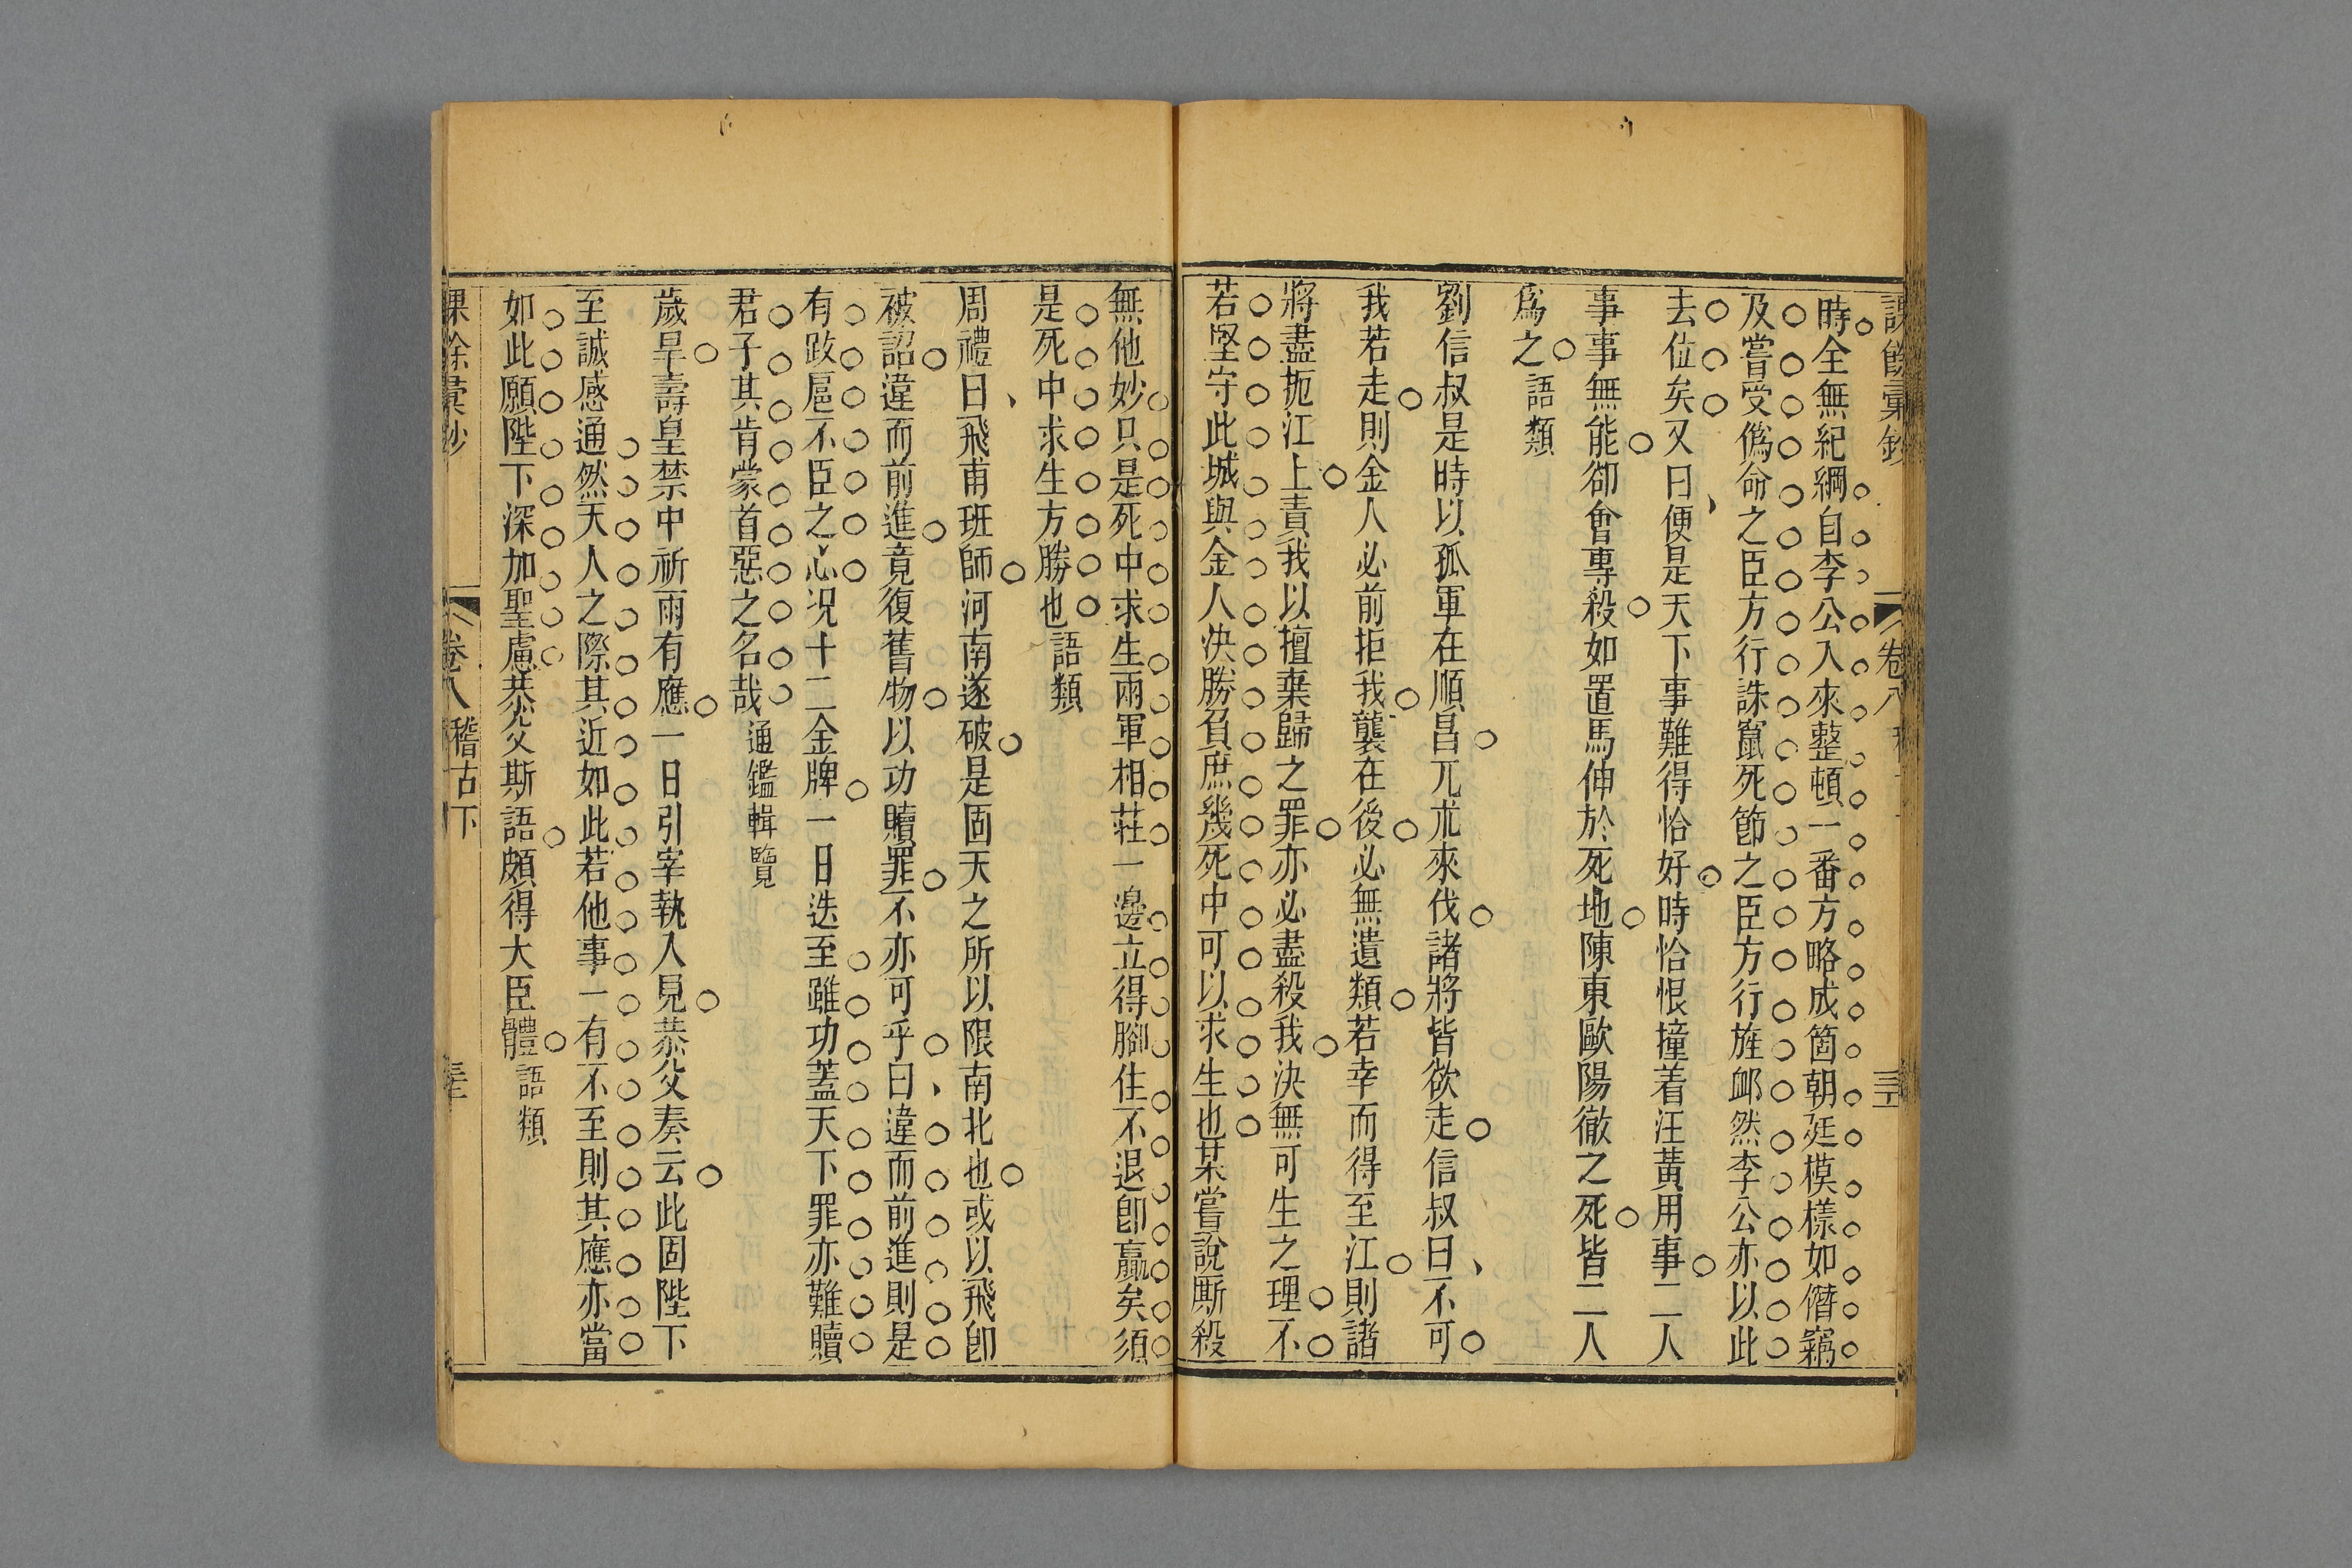 課餘彙鈔 卷八
時全無紀綱自李公入來整頓一番方略成箇朝廷模樣如僭竊
及嘗受僞命之臣方行誅竄死節之臣方行旌卹然李公亦以此
去位矣又曰便是天下事難得恰好時恰恨撞着汪黃用事二人
事事無能卻會專殺如置馬伸於死地陳東歐陽徹之死皆二人
爲之語類
劉信叔是時以孤軍在順昌兀朮來伐諸將皆欲走信叔曰不可
我若走則金人必前拒我襲在後必無遺類若幸而得至江則諸
將盡扼江上責我以擅棄歸之罪亦必盡殺我決無可生之理不
若堅守此城與金人決勝負庶幾死中可以求生也某嘗說厮殺
無他妙只是死中求生兩軍相荘一邊立得腳住不退卽贏矣須
是死中求生方勝也語類
周禮曰飛甫班師河南遂破是固天之所以限南北也或以飛卽
被詔違而前進竟復舊物以功贖罪不亦可乎曰違而前進則是
有跋扈不臣之心况十二金牌一日迭至雖功蓋天下罪亦難贖
君子其肯蒙首惡之名哉通鑑輯覽
歲旱壽皇禁中祈雨有應一日引宰執入見恭父奏云此固陛下
至誠感通然天人之際其近如此若他事一有不至則其應亦當
如此願陛下深加聖慮恭父斯語頗得大臣體語類
課餘彙鈔 卷八 稽古下